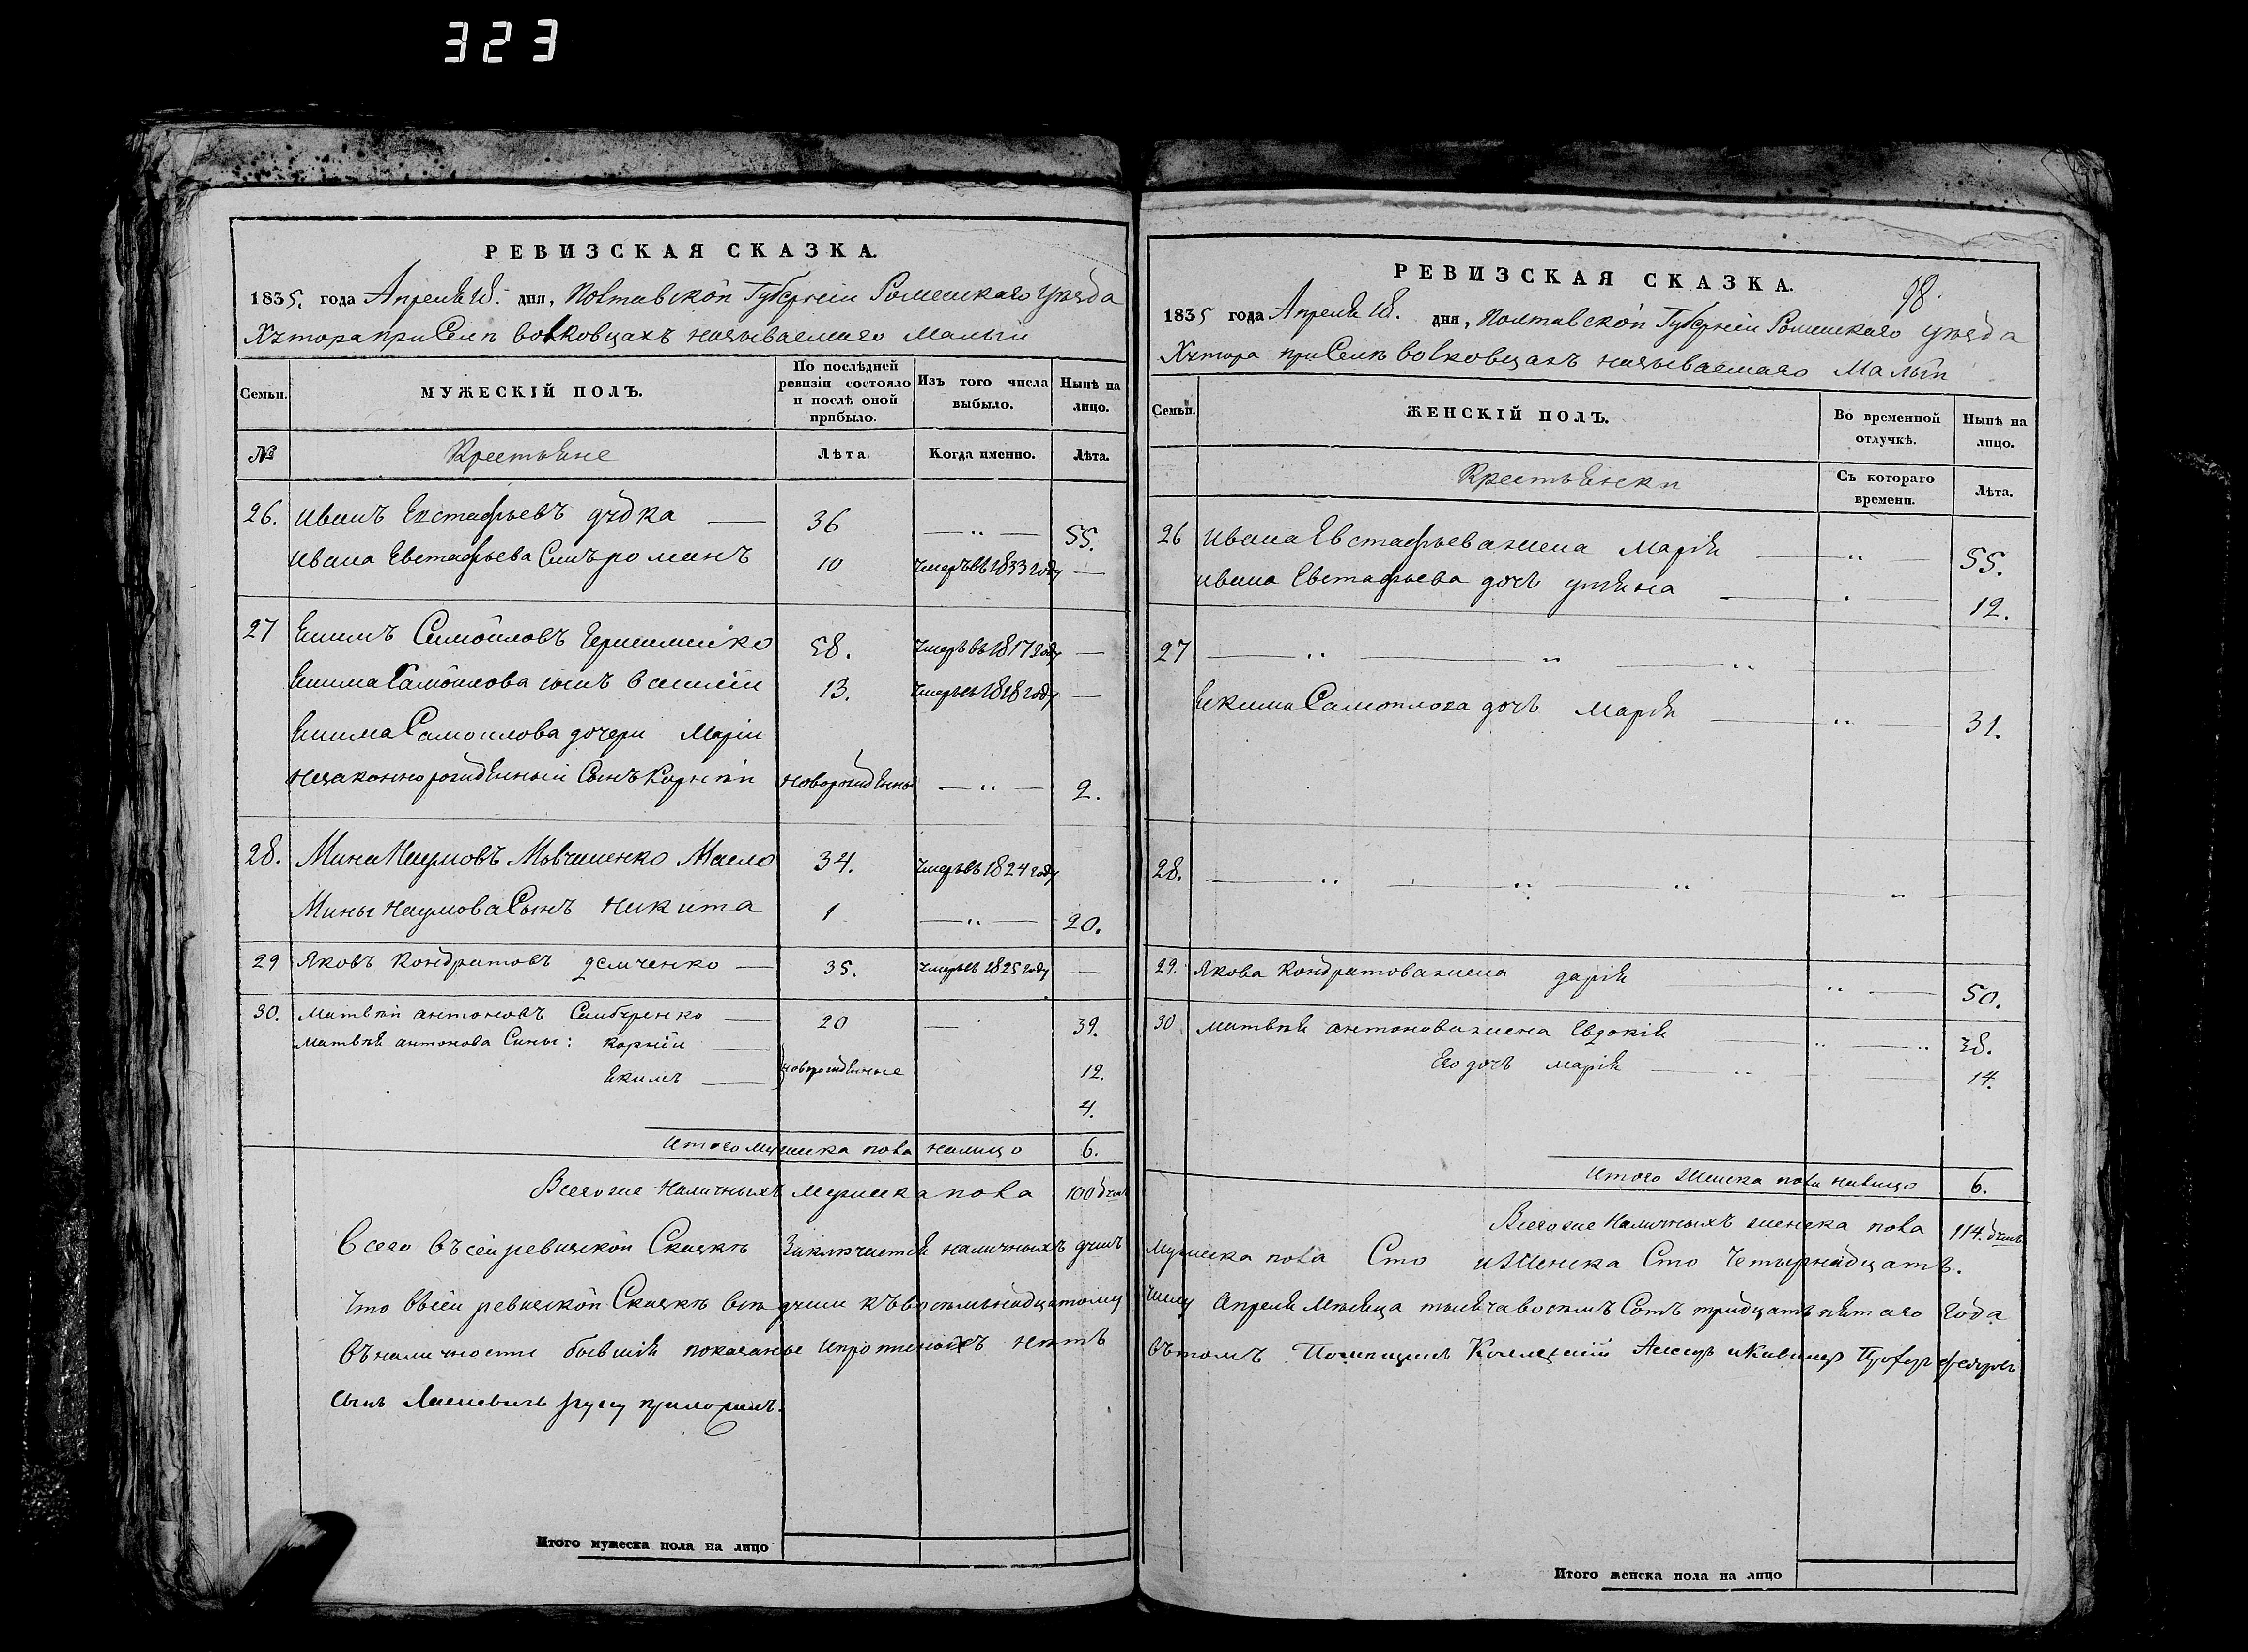 323
РЕВИЗСКАЯ СКАЗКА.
1835. года Апреля 18. дня, Полтавской Губернiи Роменскаго уезда
Хутора при Селѣ Волковцахъ называемаго Малый
Семьи.
МУЖЕСКІЙ ПОЛЪ.
По послѣдней ревизіи состояло и послѣ оной прибыло.
Изъ того числа выбыло.
Нынѣ на лицо.
№
Крестьяне
Лѣта
Когда именно.
Лѣта.
26. Иванъ Евстафьевъ дудка 36 55.
Ивана Евстафьева Сынъ романъ 10 умеръ въ 1833 году
27 Екимъ Самойловъ 58. умеръ въ 1817 году
Екима Самойлова сынъ василий 13. умеръ въ 1818 году
Екима Самойлова дочери Марiи
незаконнорожденный Сынъ Корнѣй новорожденный 2.
28. Мина Наумовъ Мовчаненко Масло 34. умеръ въ 1824 году
Мины Наумова Сынъ Никита 1 20.
29 Яковъ Кондратовъ демченко 35. умеръ въ 1825 году
30. Матвѣй антоновъ Самбуренко 20 39.
Матвѣя антонова Сыны: корнiй
Якимъ новорожденные 12.
4.
Итого мужеска пола налицо 6.
Всего же Наличныхъ мужеска пола 100 душъ
Всего въ сей ревизской Сказкѣ Заключается наличныхъ душъ
Что въ сей ревизской Сказкѣ всѣ души къ восемьнадцатому
въ наличности бывшiя показаны и прописныхъ нѣтъ
сынъ руку приложилъ.
Итого мужеска пола на лицо
РЕВИЗСКАЯ СКАЗКА.
98.
1835 года Апреля 18. дня, Полтавской Губернiи Роменскаго уезда
Хутора при Селѣ Волковцахъ называемаго Малый
Семьи.
ЖЕНСКІЙ ПОЛЪ.
Во временной отлучкѣ.
Нынѣ на лицо.
Крестьянки
Съ котораго времени.
Лѣта.
26 Ивана Евстафьева жена Марiя 55.
Ивана Евстафьева дочь улiяна 12.
27
Екима Самойлова дочь Марiя 31.
28.
29. Якова Кондратова жена дарiя 50.
30 Матвѣя антонова жена Евдокiя 38.
Его дочь марiя 14.
Итого Женска пола налицо 6.
Всего же Наличныхъ женска пола 114. душъ
Мужеска пола Сто и Женска Сто Четырнадцать.
числу Апреля Месяца тысяча восемъ Сотъ тридцать пятаго года
въ томъ Помещикъ Колежскiй и Кавалеръ Федоровъ
Итого женска пола на лицо